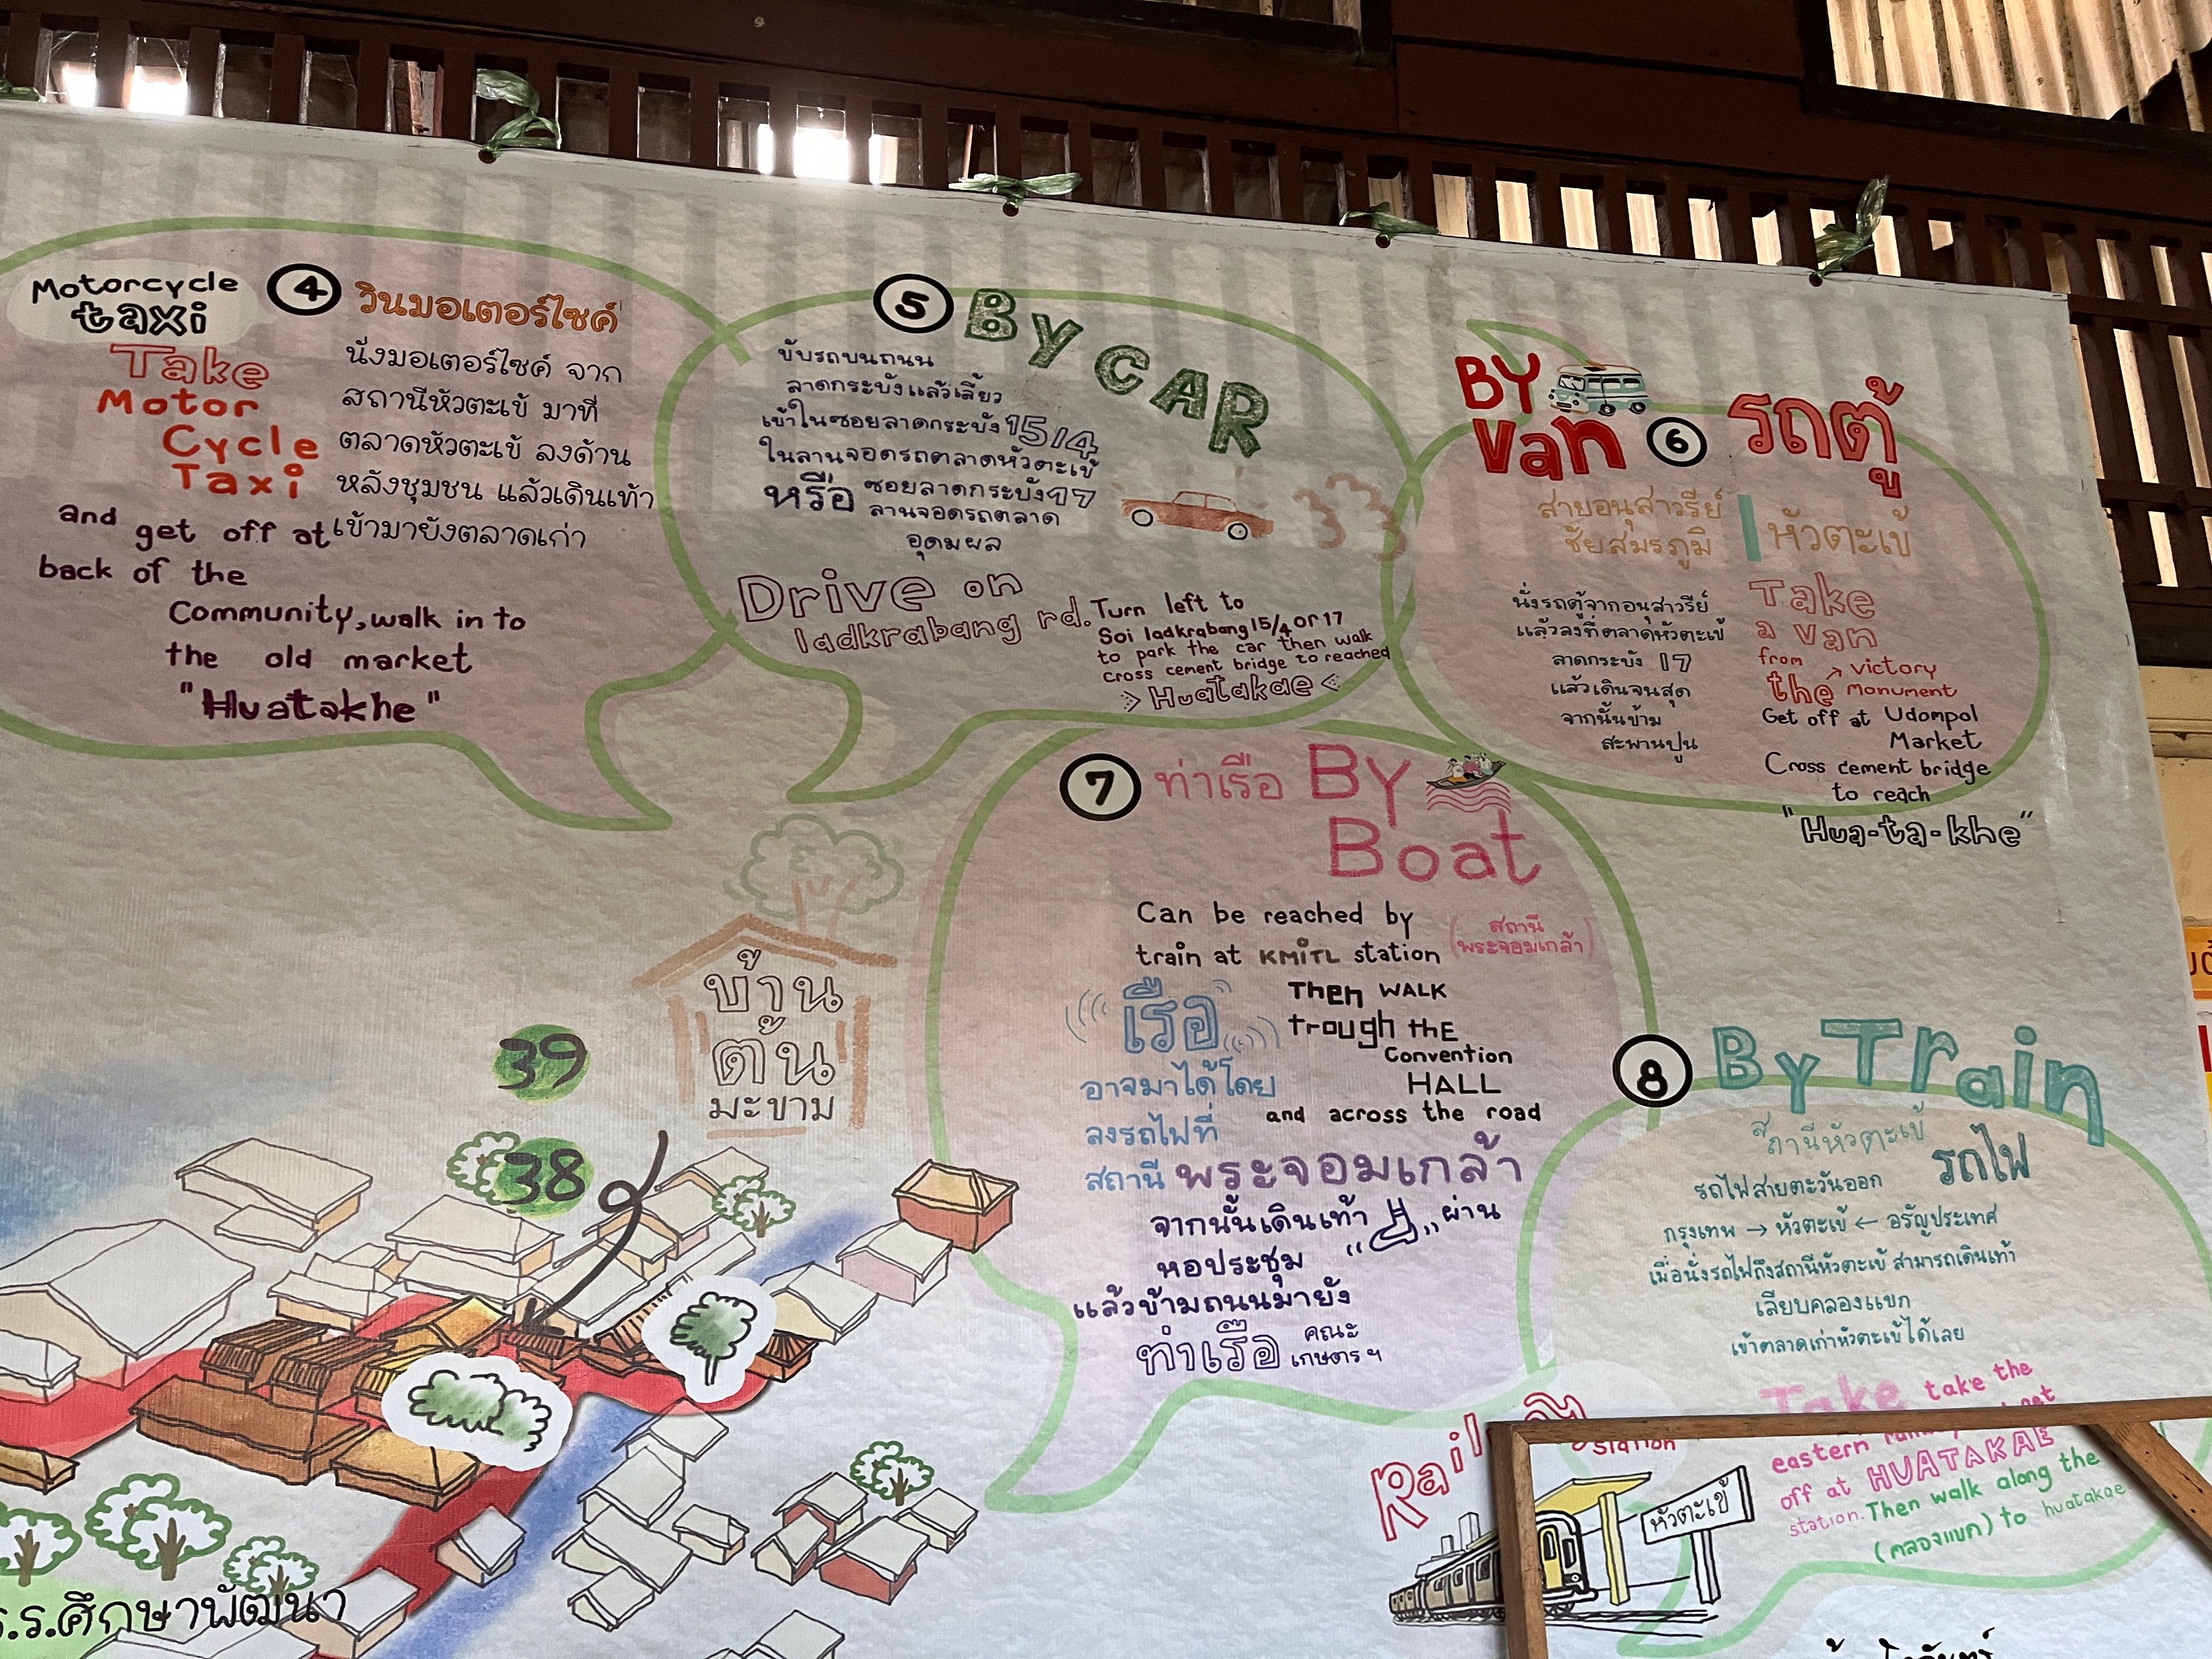 Motorcycle
taxi
④ วินมอเตอร์ไซค์
Take
Motor
Cycle
Taxi
and get off at
back of the
Community, walk in to
the old market
"Huatakhe"
นังมอเตอร์ไซค์ จาก
สถานีหัวตะเข้ มาที่
ตลาดหัวตะเข้ ลงด้าน
หลังชุมชน แล้วเดินเท้า
เข้ามายังตลาดเก่า
⑤ By CAR
ขับรถบนถนน
ลาดกระบังแล้วเลี้ยว
เข้าในซอยลาดกระบัง 15/4
ในลานจอดรถตลาดหัวตะเข้
หรือ ซอยลาดกระบัง 17
ลานจอดรถตลาด
อุดมผล
Drive on
ladkrabang rd.
Turn left to
Soi ladkrabang 15/4 or 17
to park the car then walk
cross cement bridge to reached
> Huatakae <
BY
Van ⑥ รถตู้
สายอนุสาวรีย์
ชัยสมรภูมิ | หัวตะเข้
นั่งรถตู้จากอนุสาวรีย์
แล้วลงที่ตลาดหัวตะเข้
ลาดกระบัง 17
แล้วเดินจนสุด
จากนั้นข้าม
สะพานปูน
Take
a van
from → victory
the Monument
Get off at Udompol
Market
Cross cement bridge
to reach
"Hua-ta-khe"
⑦ ท่าเรือ By
Boat
Can be reached by
train at KMITL station (สถานี
พระจอมเกล้า)
Then WALK
trough thE
Convention
HALL
and across the road
เรือ
อาจมาได้โดย
ลงรถไฟที่
สถานี พระจอมเกล้า
จากนั้นเดินเท้า " " ผ่าน
หอประชุม
แล้วข้ามถนนมายัง
ท่าเรือ คณะ
เกษตรฯ
⑧ By Train
สถานีหัวตะเข้
รถไฟ
รถไฟสายตะวันออก
กรุงเทพ → หัวตะเข้ ← อรัญประเทศ
เมื่อนั่งรถไฟถึงสถานีหัวตะเข้ สามารถเดินเท้า
เลียบคลองแขก
เข้าตลาดเก่าหัวตะเข้ได้เลย
Take take the
eastern
off at HUATAKAE
station. Then walk along the
(คลองแขก) to huatakae
Rail
station
หัวตะเข้
บ้าน
ต้น
มะขาม
39
38
ร.ร.ศึกษาพัฒนา